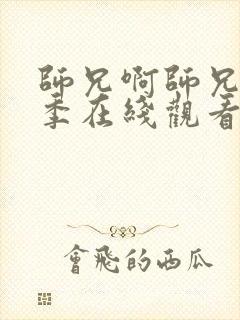 師兄啊師兄
季在綫觀看
會飛的西瓜